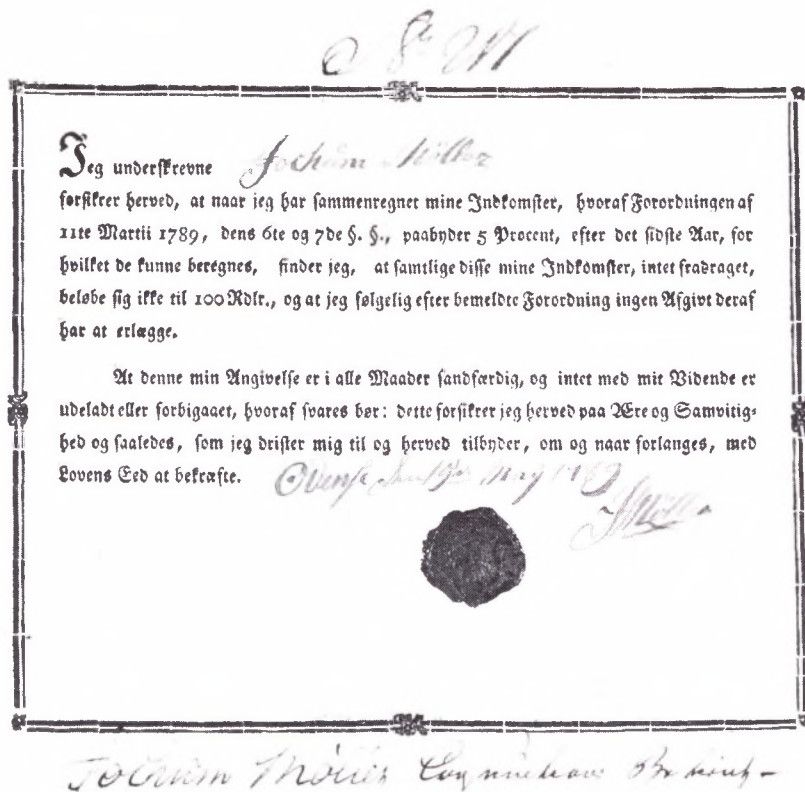 Jeg underskrevne Jochum Möller
forsikrer herved, at naar jeg har sammenregnet mine Indkomster, hvoraf Forordningen af
11te Martii 1789, dens 6te og 7de §. §., paabyder 5 Procent, efter det sidste Aar, for
hvilket de kunne beregnes, finder jeg, at samtlige disse mine Indkomster, intet fradraget,
beløbe sig ikke til 100 Rdlr., og at jeg følgelig efter bemeldte Forordning ingen Afgivt deraf
har at erlægge.
At denne min Angivelse er i alle Maader sandfærdig, og intet med mit Vidende er
udeladt eller forbigaaet, hvoraf svares bør: dette forsikrer jeg herved paa Ære og Samvitig-
hed og saaledes, som jeg drister mig til og herved tilbyder, om og naar forlanges, med
Lovens Eed at bekræfte. Odense May
JMöller
Jochum Möller